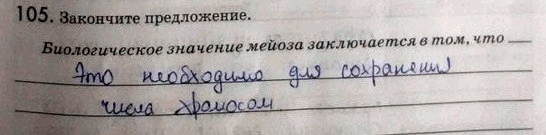 105. Закончите предложение.
Биологическое значение мейоза заключается в том, что
Это необходимо для сохранения
числа хромосом